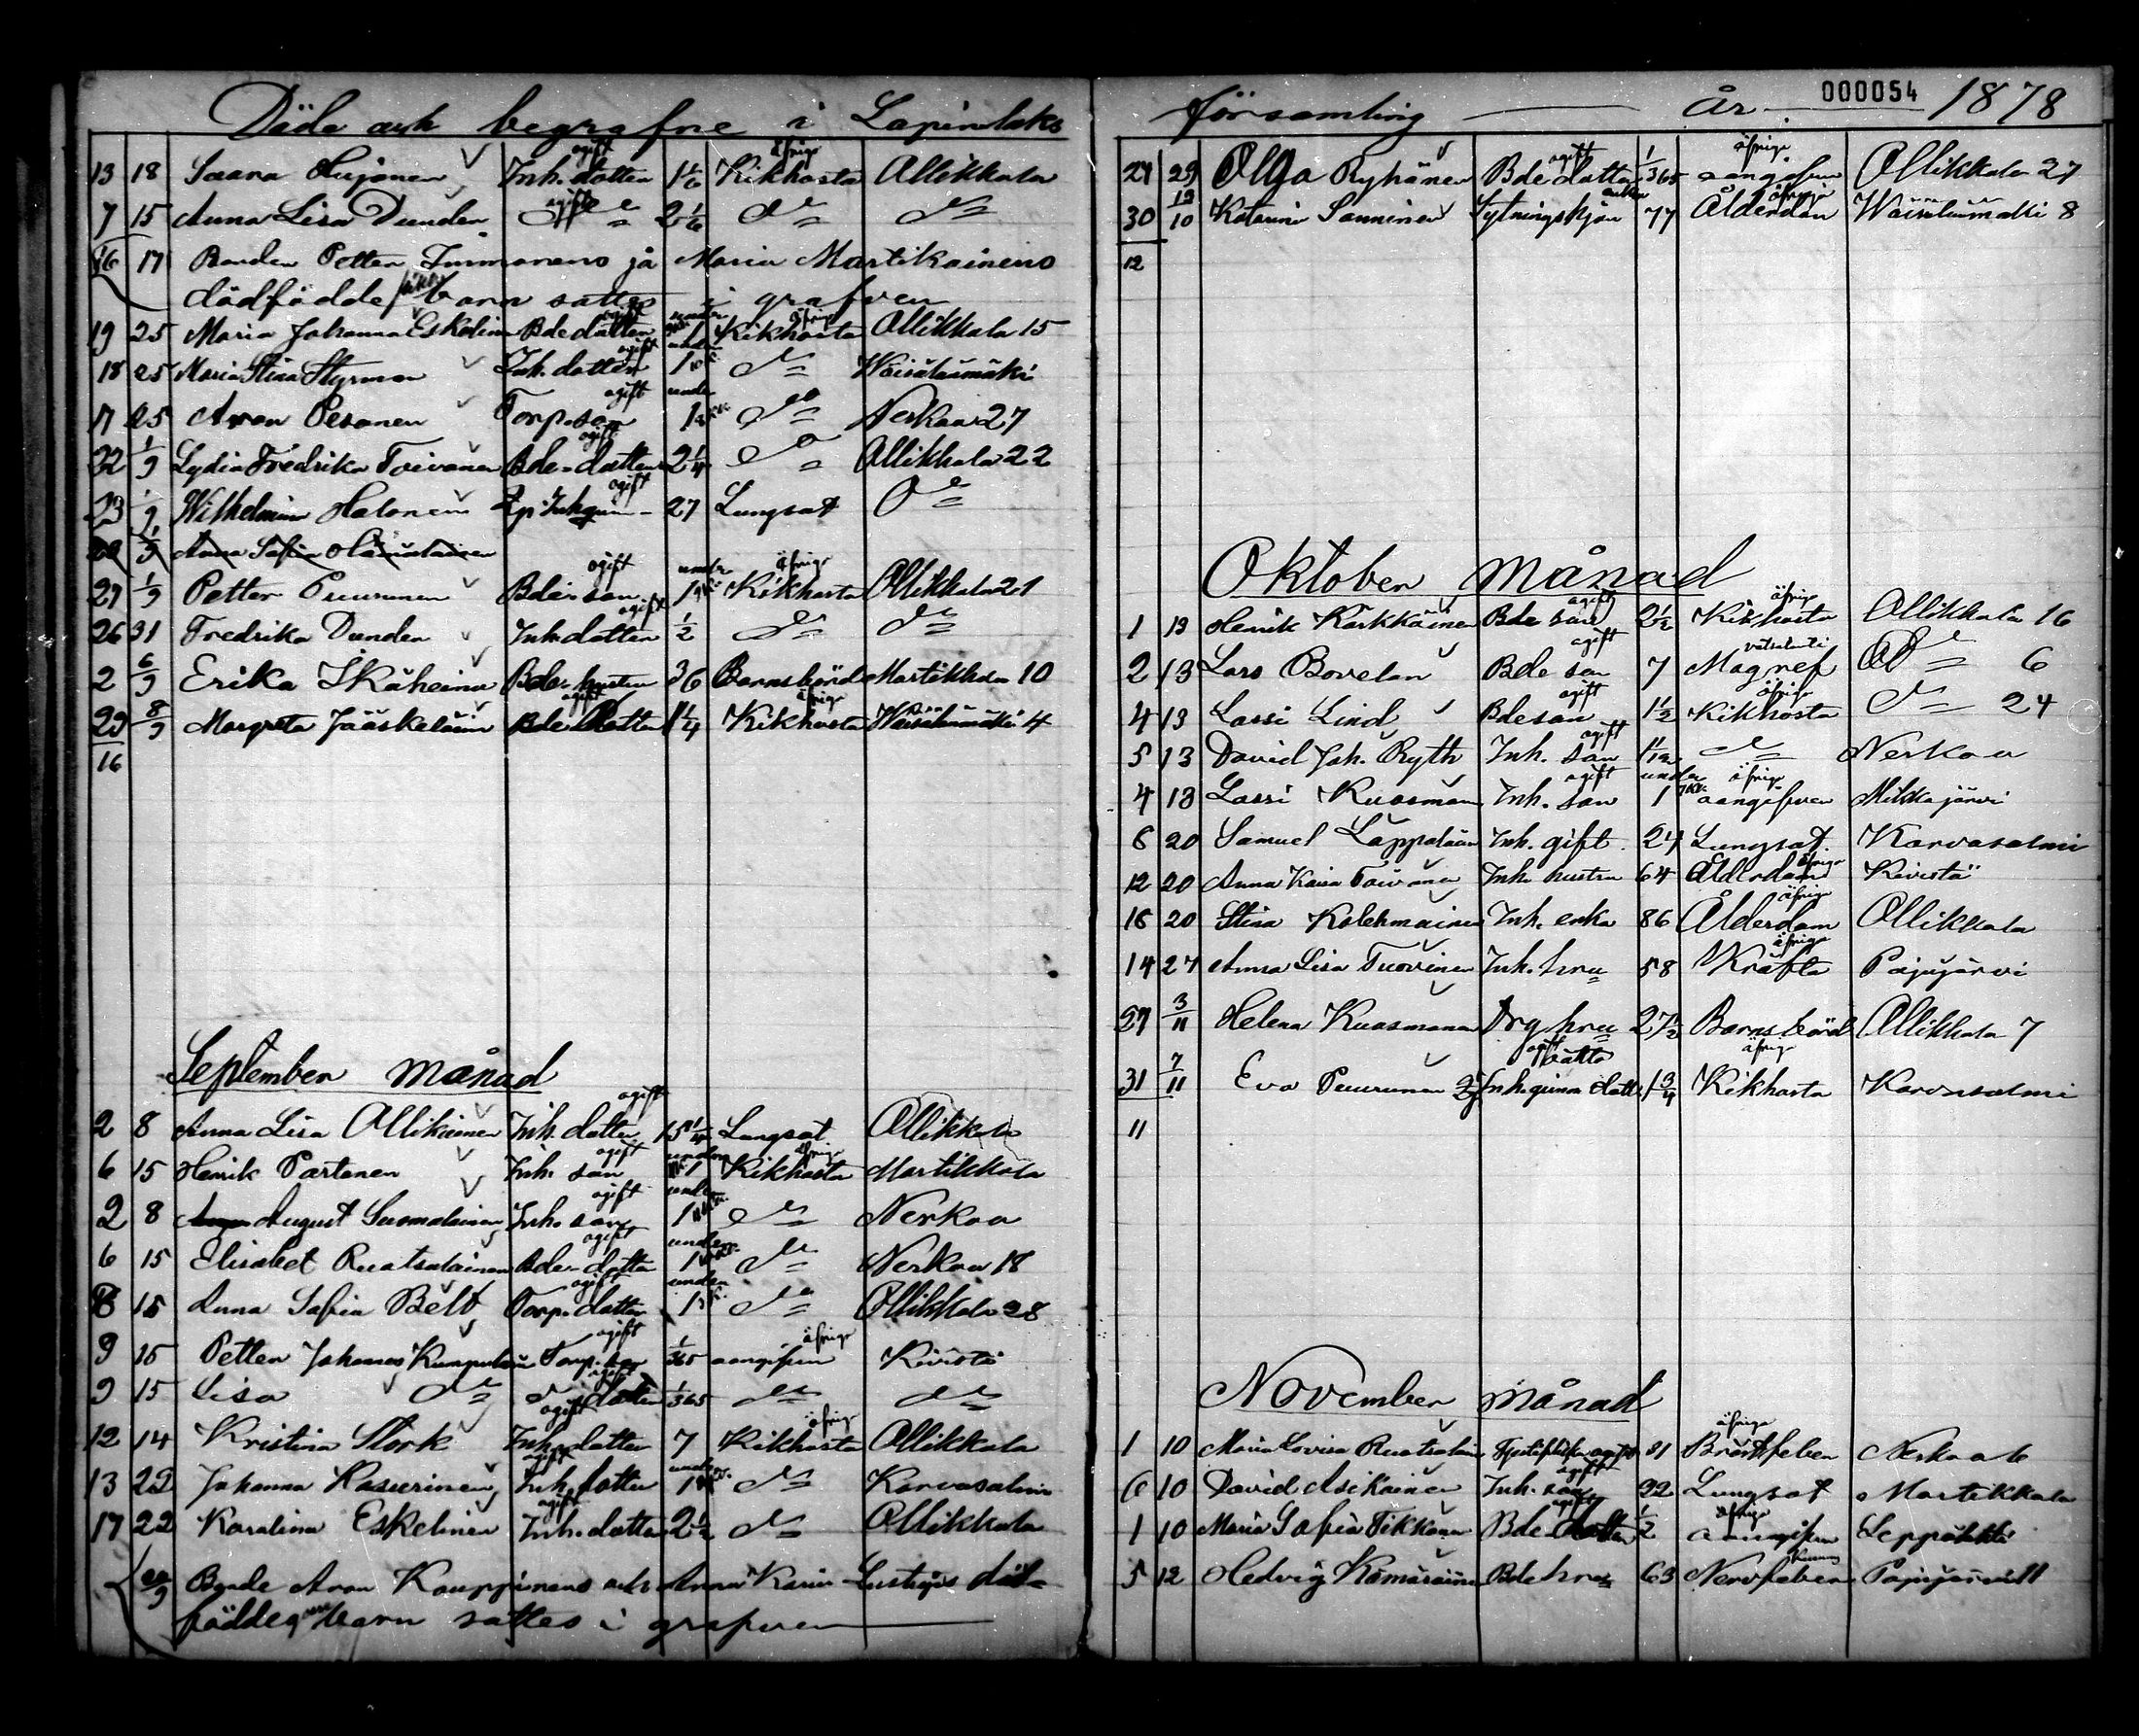 Döde och begrafne i Lapinlaks
13 18 Saara Hujanen Inh. dotter ogift 1 1/6 Kikhosta öfrige Ollikkala
7 15 Anna Lisa Dunder ogift 2 1/6 d:o d:o
16 17 Bonden Petter Immonens på Maria Martikainens
dödfödde barn sattes i grafven
19 25 Maria Johanna Eskelin Bde dotter ogift under 1 Kikhosta öfrige Ollikkala 15
18 25 Maria Stina Styrman Inh. dotter ogift under 1 d:o Väisälänmäki
17 25 Aron Pesonen Torp. son ogift under 1 d:o Nerkoo 27
22 1/9 Lydia Fredrika Toivanen Bde dotter ogift 2 1/4 d:o Ollikkala 22
23 1/9 Wilhelmina Halonen ogift 27 Lungsot d:o
Anna Sofia
29 1/9 Petter Puurunen Bde son ogift under 1 Kikhosta öfrige Ollikkala 21
26 31 Fredrika Dunder Inh. dotter ogift 1/2 d:o d:o
2 6/9 Erika Ikäheimo Bde hustru 36 Barnsbörd Martikkala 10
29 8/9 Margreta Jääskeläin Bde dotter ogift 1 1/4 Kikhosta öfrige Väisälänmäki 4
16
September månad
2 8 Anna Lisa Ollikainen Inh. dotter ogift 15 Lungsot Ollikkala
6 15 Henrik Partanen Inh. son ogift under 1 Kikhosta öfrige Martikkala
2 8 August Suomalainen Inh. son ogift under 1 d:o Nerkoo
6 15 Elisabet Ruotsalainen Bde dotter ogift under 1 d:o Nerkoo 18
8 15 Anna Sofia Bält Torp. dotter ogift under 1 d:o Ollikkala 28
9 15 Petter Johannes Kumpulain Torp. son ogift 1/365 oangifven öfrige Kivistö
9 15 Lisa d:o d:o dotter ogift 1/365 d:o d:o
12 14 Kristina Stork Inh. dotter ogift 7 Kikhosta öfrige Ollikkala
13 22 Johanna Kasurinen Inh. dotter ogift under 1 d:o Karvasalmi
17 22 Karolina Eskelinen Inh. dotter ogift 2 1/2 d:o Ollikkala
22/9 Bonde Aron Kauppinens och Anna Karin Lustigs död-
födde barn sattes i grafven
församling år 000054 1878
27 29 Olga Ryhänen Bde dotter ogift 1/365 oangifven öfrige Ollikkala 27
30 12/10 Katarina Sanninen Sytningshjon enka 77 Ålderdom öfrige Väisälänmäki 8
12
Oktober månad
1 13 Henrik Kärkkäinen Bde son ogift 2 1/2 Kikhosta öfrige Ollikkala 16
2 13 Lars Bovelan Bde son ogift 7 Magref d:o 6
4 13 Lassi Lind Bde son ogift 1 1/2 Kikhosta öfrige d:o 24
5 13 David Joh. Ryth Inh. son ogift 1 1/12 d:o Nerkoo
4 13 Lassi Kuosman Inh. son ogift under 1 oangifven öfrige
6 20 Samuel Lappalain Inh. gift 24 Lungsot Karvasalmi
12 20 Anna Kaisa Toivanen Inh. hustru 64 Ålderdom öfrige Kivistö
18 20 Stina Kolehmainen Inh. enka 86 Ålderdom öfrige Ollikkala
14 27 Anna Lisa Tuovinen Inh. hru 58 Kräfta öfrige Pajujärvi
27 3/11 Helena Kuosmanen hru 27 1/2 Barnsbörd Ollikkala 7
31 7/11 Eva Puurunen ogift 1 3/4 Kikhosta öfrige Karvasalmi
11
November månad
1 10 Maria Lovisa Ruotsalain ogift Bröstfeber öfrige Nerkoo 6
6 10 David Asikainen Inh. son ogift 22 Lungsot Martikkala
1 10 Maria Sofia Tikkan Bde dotter ogift 1/2 oangifven öfrige
5 12 Hedvig Kämäräin Bde hru 63 Nervfeber Pajujärvi 11